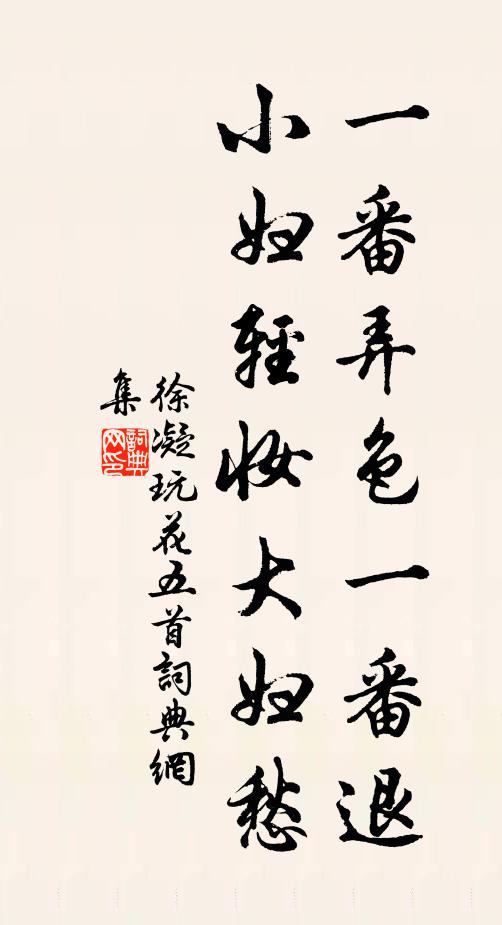 一番弄色一番退
小妇輕妆大妇愁
徐凝玩花五首詞典網
集
詞典網印